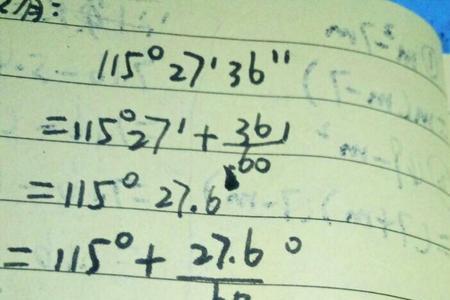 115°27'36"
=115°27'+36/60'
=115°27.6'
=115°+27.6/60°